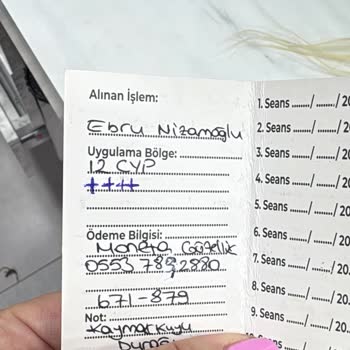 Alınan İşlem:
Ebru Nizamoğlu
Uygulama Bölge:
12 CYP
++++
Ödeme Bilgisi:
Moneta Güzellik
0553 7892880
671-879
Not:
Kaymakkuyu
1. Seans ....../....../20
2. Seans ....../....../20
3. Seans ....../....../20
4. Seans ....../....../20
5. Seans ....../....../20
6. Seans ....../....../20
7. Seans ....../....../20.
8. Seans ....../....../20.
9. Seans ....../....../20.